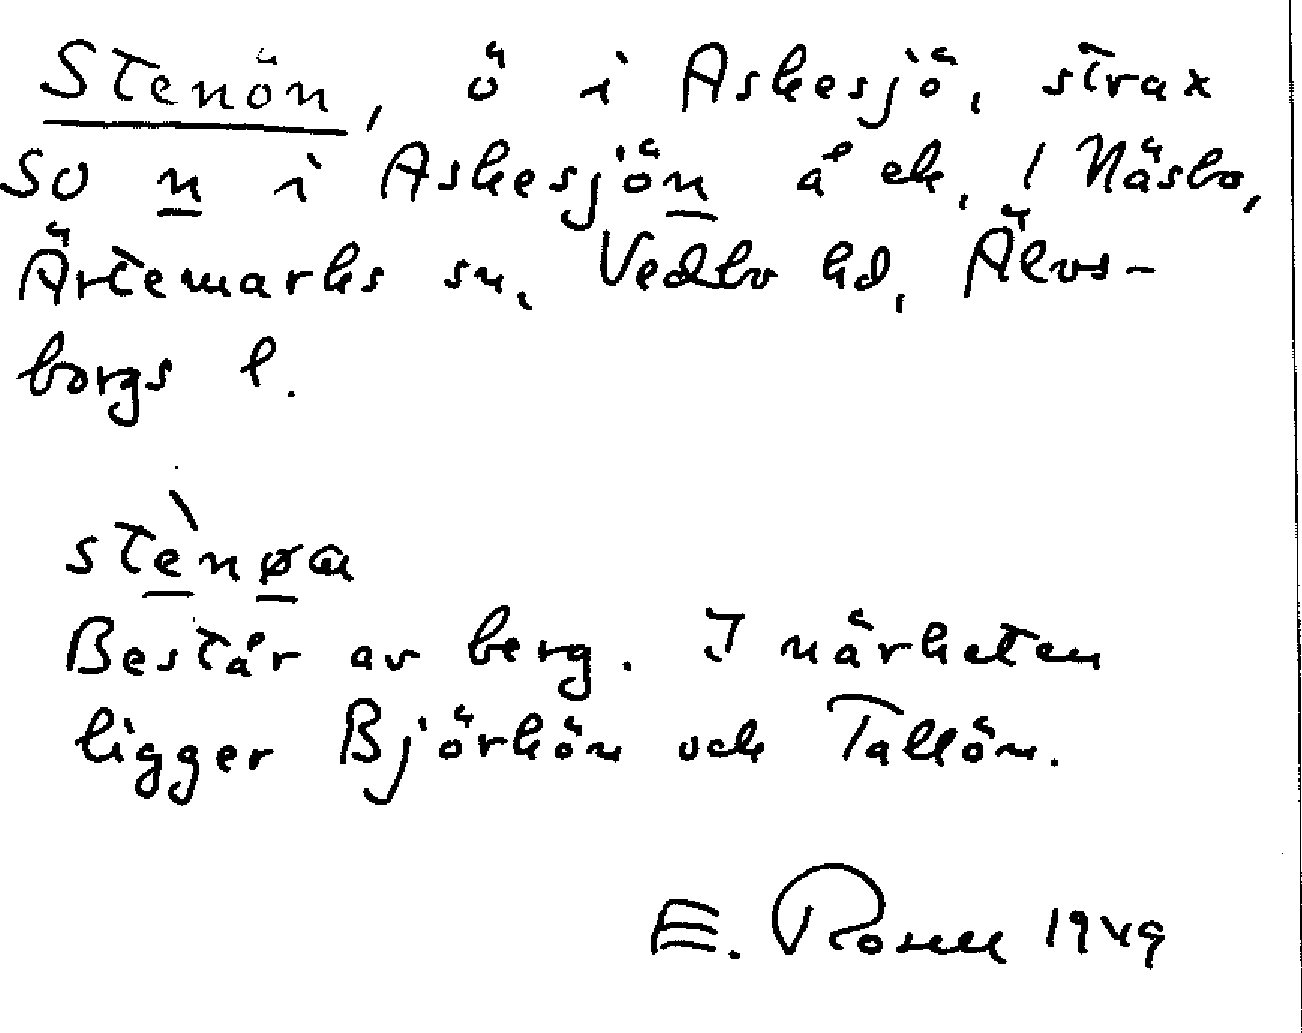 Stenön, ö i Askesjö, strax
SO n i Askesjön å ek. / Näsbo,
Ärtemarks sn, Vedbo hd, Älvs-
borgs l.
stènøa
Består av berg. I närheten
ligger Björkön och Tallön.
E. Rosell 1949